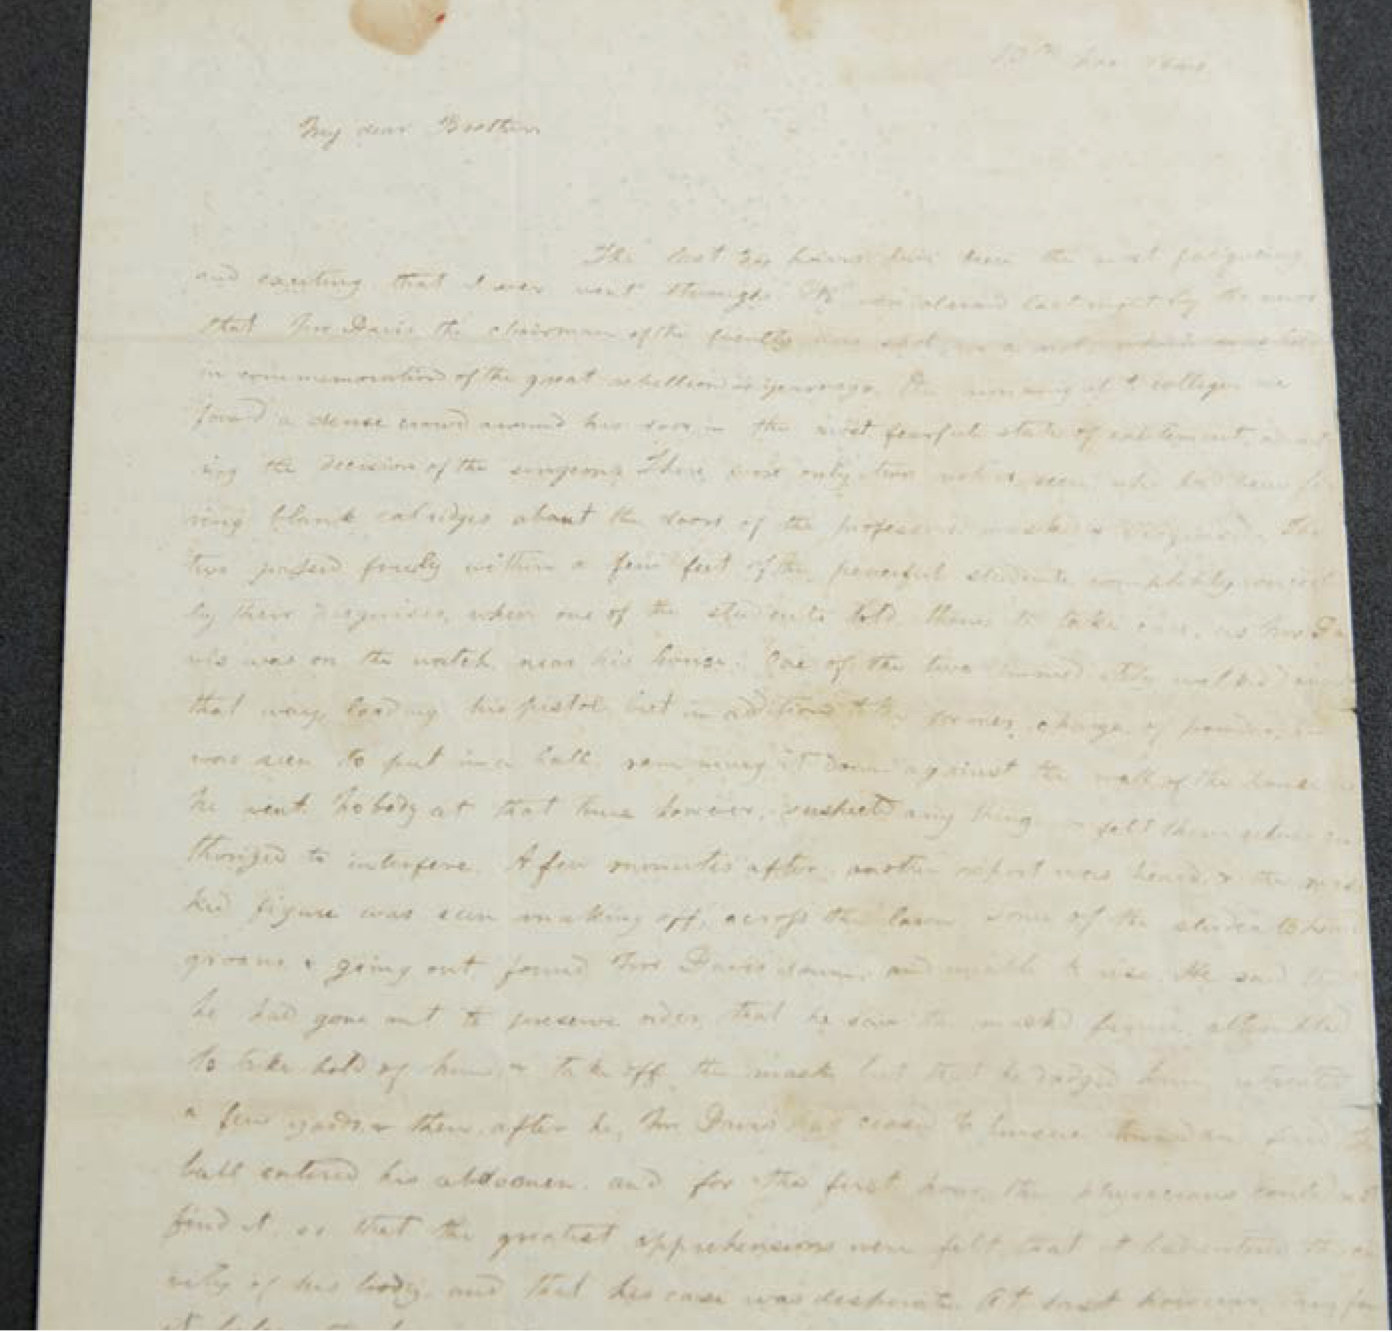 13th Nov 1840
My dear Brother
The last 24 hours have been the most fatiguing
and exciting that I ever went through. We were alarmed last night by the news
that Mr Davis the chairman of the faculty was shot, in a riot, which was
in commemoration of the great rebellion 4 years ago. On running up to college we
found a dense crowd around his door in the most fearful state of excitement, await
ing the decision of the surgeons. There were only two rioters seen, who had been fi
ring blank catridges about the doors of the professors masked & disguised. The
two passed freely within a few feet of the peaceful students completely conceal
by their disguises, when one of the students told them to take care, as Mr Da
vis was on the watch near his house. One of the two immediately walked
that way, loading his pistol but in addition to the former charge of powder, he
was seen to put in a ball ramming it down against the wall of the house as
he went. Nobody at that time however, suspected any thing or felt themselves au
thorized to interfere. A few minutes after, another report was heard, & the mas
ked figure was seen making off, across the lawn. Some of the students heard
groans & going out found Mr Davis down, and unable to rise. He said that
he had gone out to preserve order, that he saw the masked figure, attempted
to take hold of him & take off the mask but that he dodged him, retreated
a few yards & then, after he, Mr Davis had ceased to pursue turned and fired. The
ball entered his abdomen, and for the first hour the physicians could not
find it, so that the greatest apprehensions were felt that it had entered the ca
vity of his body, and that his case was desperate. At last however, they fou
it below the